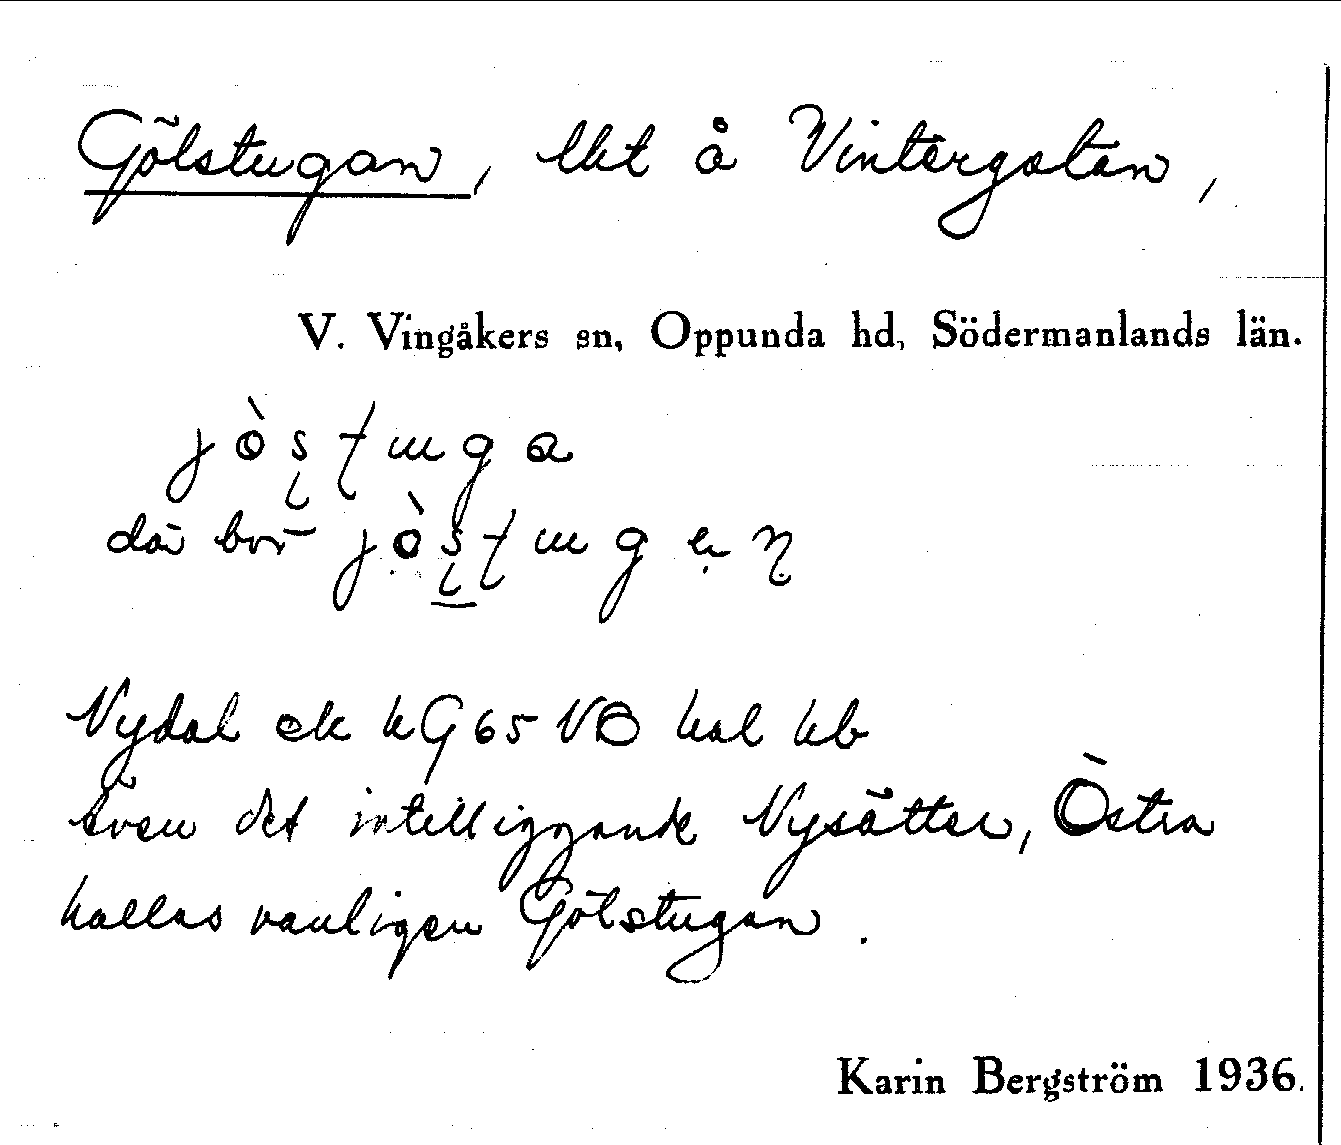 Gölstugan, lht å Vintergatan,
V. Vingåkers sn, Oppunda hd, Södermanlands län.
där bor
Nydal ek kG65NB kal kb
även det intilliggande Nysätter, Östra
kallas vanligen Gölstugan.
Karin Bergström 1936.